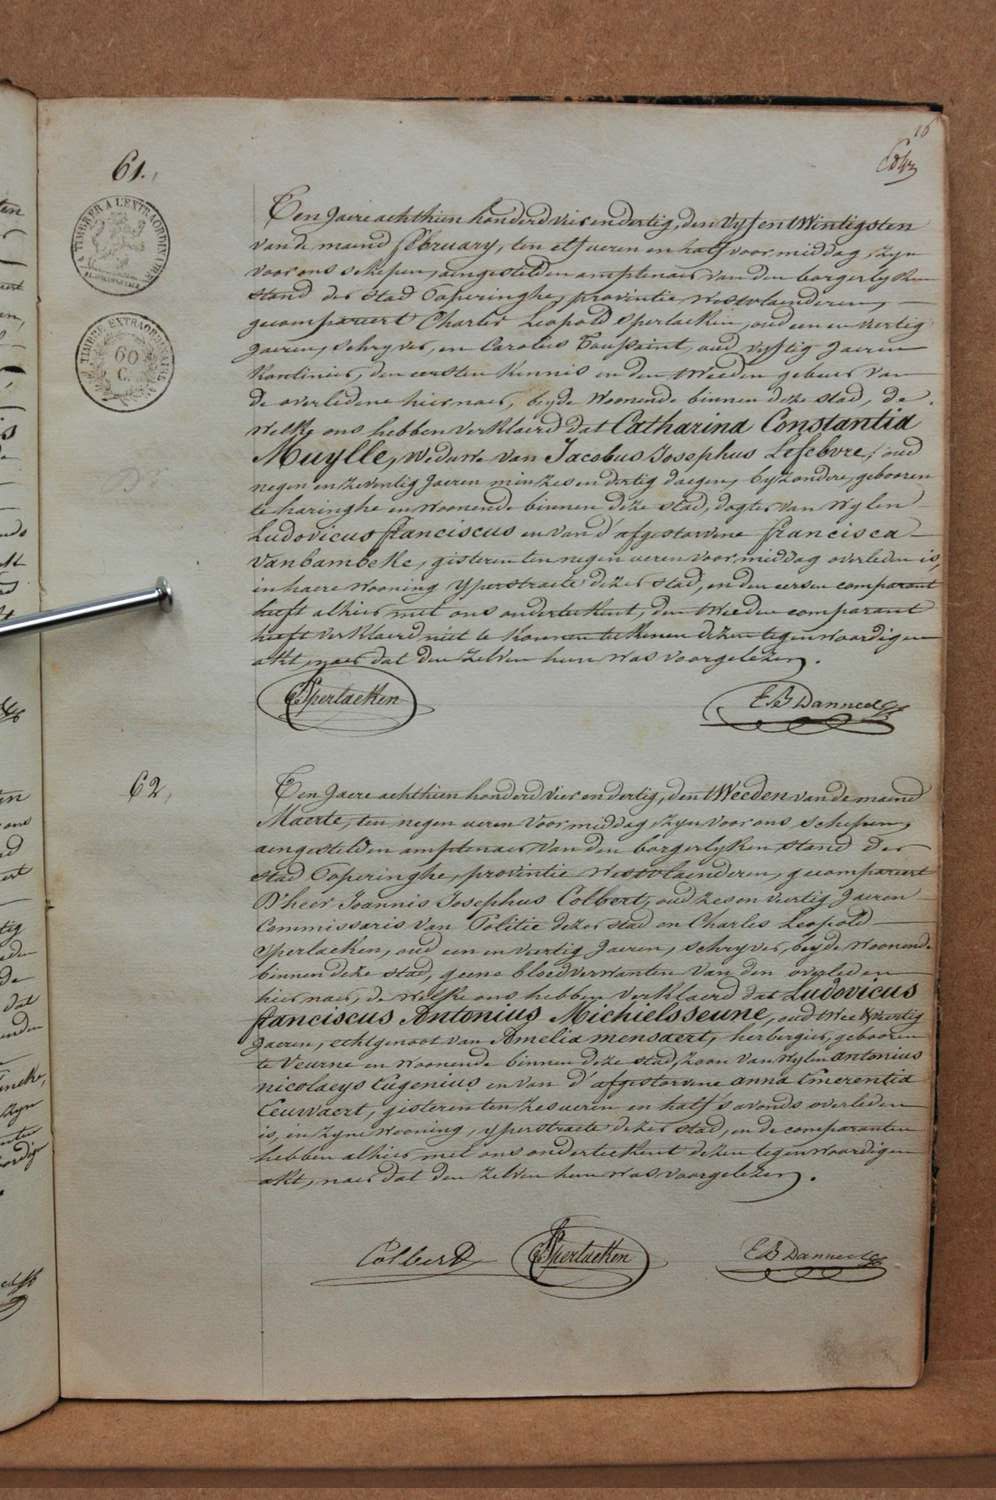 16
61.
TIMBRER A L'EXTRAORDINAIRE
TIMBRE EXTRAORDINAIRE
60
C.
Ten Jaere achthien honderd vier en dertig, den Vyf en twintigsten
van de maend february, ten elf ueren en half voormiddag, zyn
voor ons schepen, aengestelden amptenaer van den borgerlyken
stand der stad Poperinghe, provintie Westvlaenderen,
gecompareert Charles Leopold Sperlaeken, oud een en veertig
Jaeren, schryver, en Carolus Toussaint, oud vyftig Jaeren
Kantinier, den eersten Kennis en den tweeden gebuer van
de overledene hier naer, beyde Woonende binnen deze stad, de
welke ons hebben verklaerd dat Catharina Constantia
Muylle, Weduwe van Jacobus Josephus Lefebvre, oud
negen en zeventig Jaeren min zes en dertig daegen, byzondere, gebooren
te haringhe en woonende binnen deze stad, dogter van Wylen
Ludovicus franciscus en van d'afgestorvene francisca
Vanbambeke, gisteren ten negen ueren voormiddag overleden is,
in haere Wooning Yperstraete dezer stad, en den eersen comparant
heeft alhier met ons onderteekent, den tweeden comparant
heeft verklaerd niet te konnen teekenen dezen tegenwoordigen
akt, naer dat den zelven hun was voorgelezen.
Sperlaeken
E B Danneel
62.
Ten Jaere achthien honderd vier en dertig, den tweeden van de maend
Maerte, ten negen ueren Voormiddag, zyn voor ons schepen,
aengestelden amptenaer van den borgerlyken stand der
stad Poperinghe, provintie Westvlaenderen, gecompareert
D'heer Joannis Josephus Colbert, oud zes en viertig Jaeren
Commissaris van Politie dezer stad en Charles Leopold
Sperlaeken, oud een en veertig Jaeren, schryver, beyde woonende
binnen deze stad, geene bloedverwanten van den overleden
hier naer, de welke ons hebben verklaerd dat Ludovicus
franciscus Antonius Michielsseune, oud twee & veertig
Jaeren, echtgenoot van Amelia mensaert, herbergier, gebooren
te Veurne en woonende binnen deze stad, zoon van Wylen antonius
nicolaeys Eugenius en van d'afgestorvene anna Emerentia
Leuwaert, gisteren ten zes ueren en half s'avonds overleden
is, in zyne wooning, yperstraete dezer stad, en de comparanten
hebben alhier met ons onderteekent dezen tegenwoordigen
akt, naer dat den zelven hun was voorgelezen.
Colbert
Sperlaeken
E B Danneel